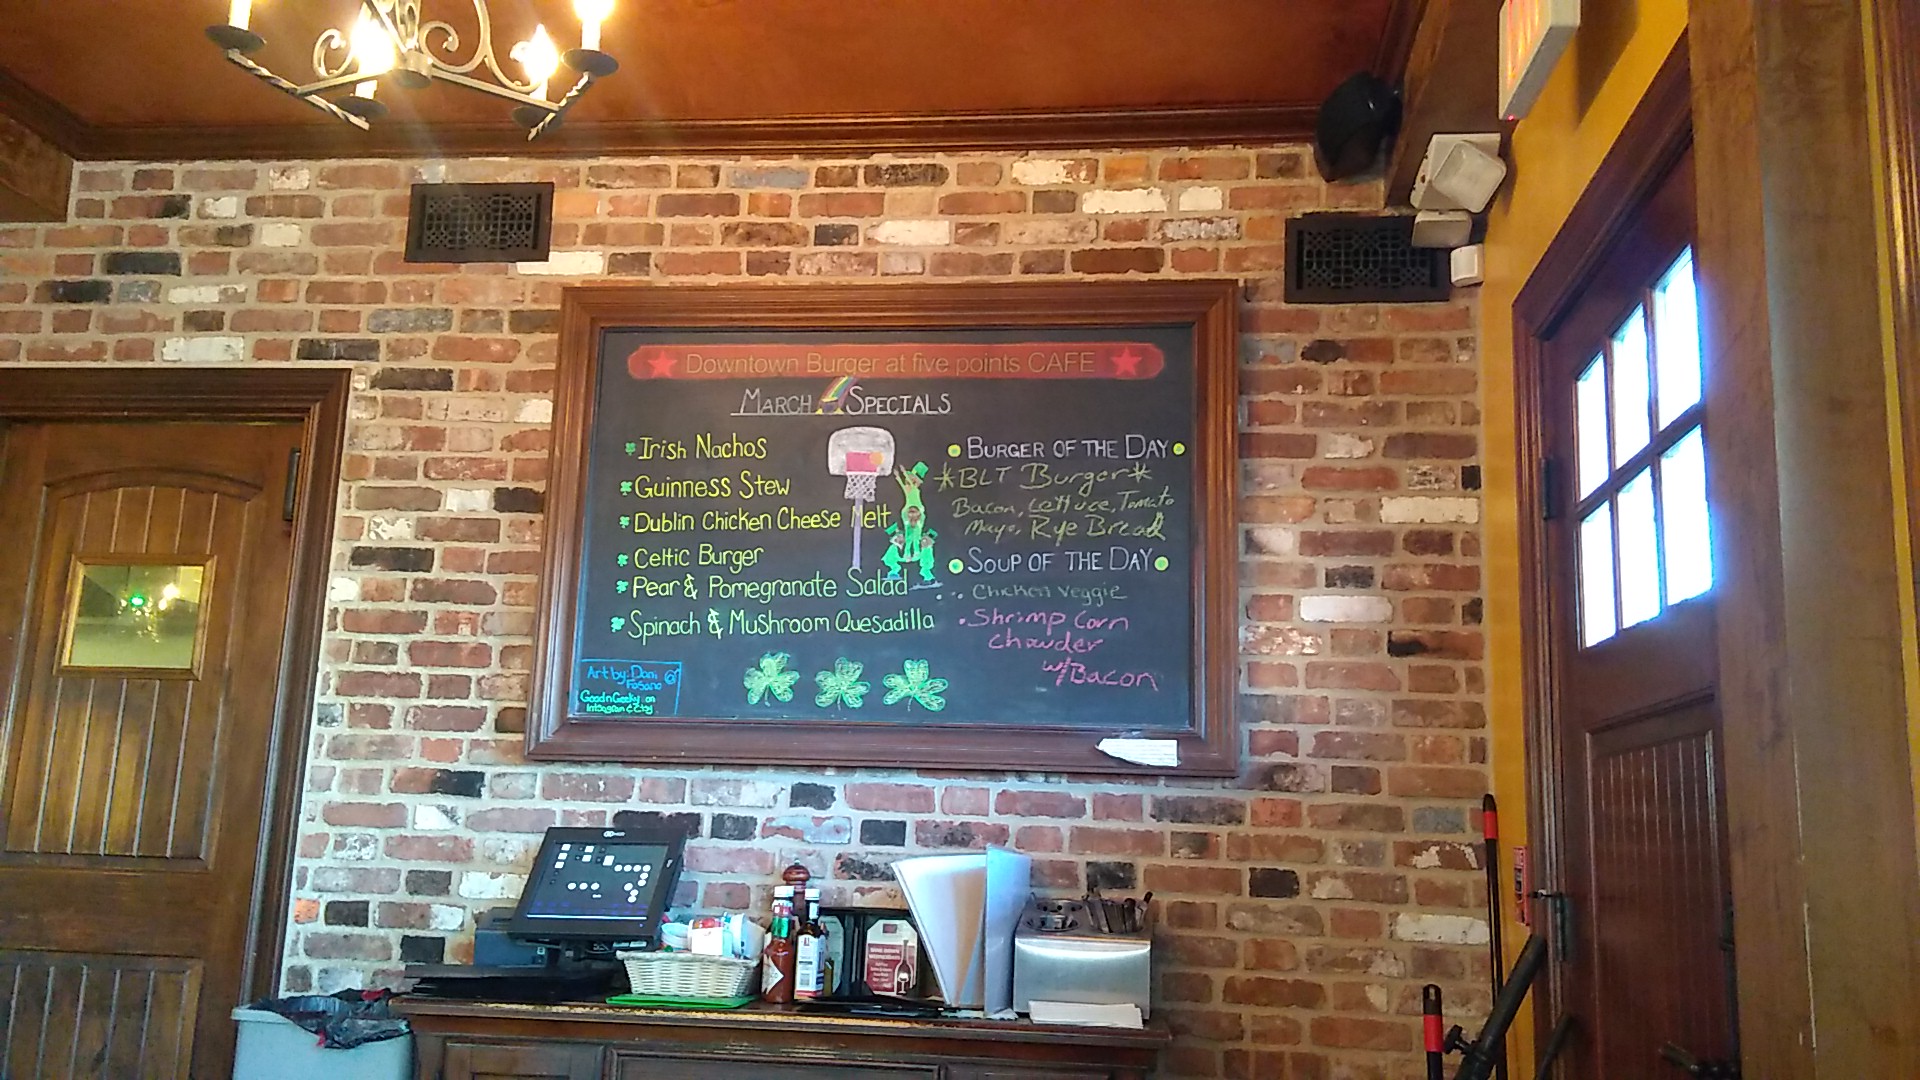 Downtown Burger at five points CAFE
MARCH SPECIALS
Irish Nachos
Guinness Stew
Dublin Chicken Cheese Melt
Celtic Burger
Pear & Pomegranate Salad
Spinach & Mushroom Quesadilla
Art by: Dani
Fasano
GoodnGeeky on
BURGER OF THE DAY
*BLT Burger*
Bacon, Lettuce, Tomato
Mayo, Rye Bread
SOUP OF THE DAY
Chicken Veggie
Shrimp Corn
Chowder
w/Bacon